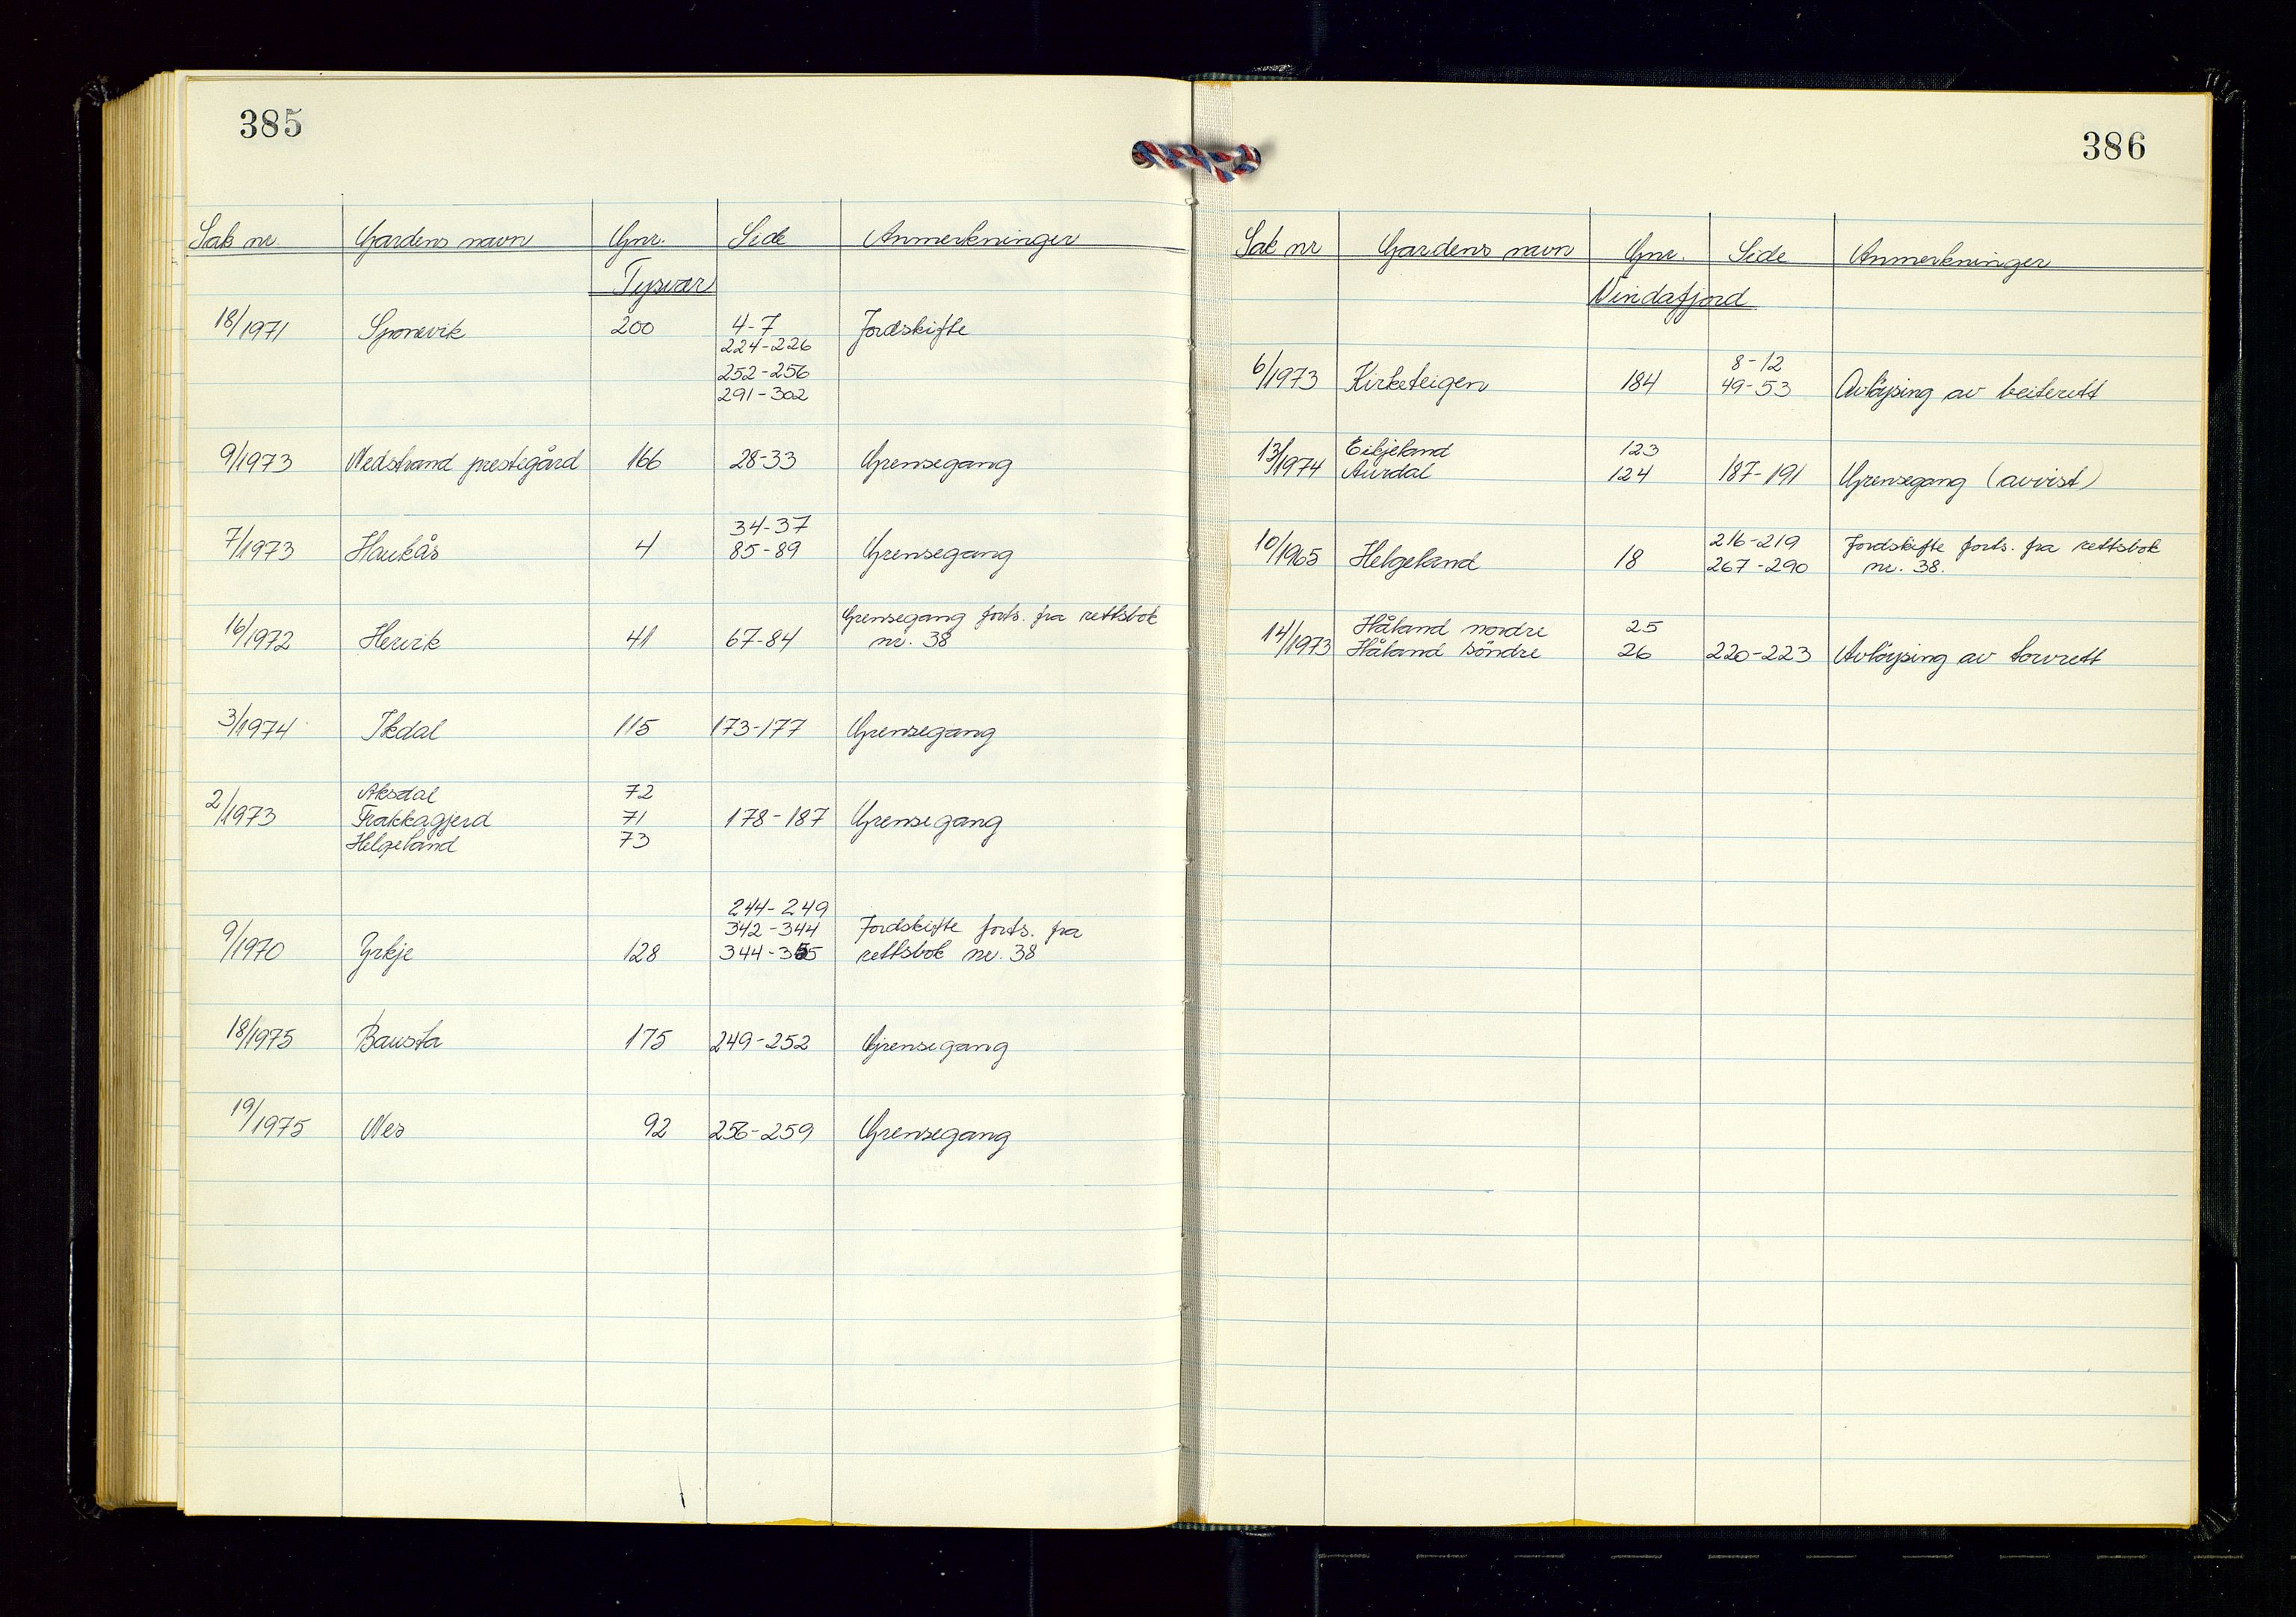 385
Sak nr. Gardens navn Gnr. Side Anmerkninger
Tysvær
18/1971 Sponevik 200 4-7 Jordskifte
224-226
252-256
291-302
9/1973 Nedstrand prestigård 166 28-33 Grensegang
34-37
7/1973 Haukås 4 85-89 Grensegang
Grensegang forts. fra rettsbok
16/1972 Hervik 41 67-84 nr. 38
3/1974 Ikdal 115 173-177 Grensegang
Aksdal 72
2/1973 Frakkagjerd 71 178-187 Grensegang
Helgeland 73
244-249
342-344 Jordskifte forts. fra
9/1970 Yrkje 128 344-355 rettsbok nr. 38
18/1975 Bausta 175 249-252 Grensegang
19/1975 Nes 92 256-259 Grensegang
386
Sak nr Gardens navn Gnr. Side Anmerkninger
Vindafjord
8-12
6/1973 Kirketeigen 184 49-53 Avløysing av beiterett
Eikjeland 123
13/1974 Aurdal 124 187-191 Grensegang (avvist)
216-219 Jordskifte forts. fra rettsbok
10/1965 Helgeland 18 267-290 nr. 38.
Håland nordre 25
14/1973 Håland söndre 26 220-223 Avløysing av torvrett